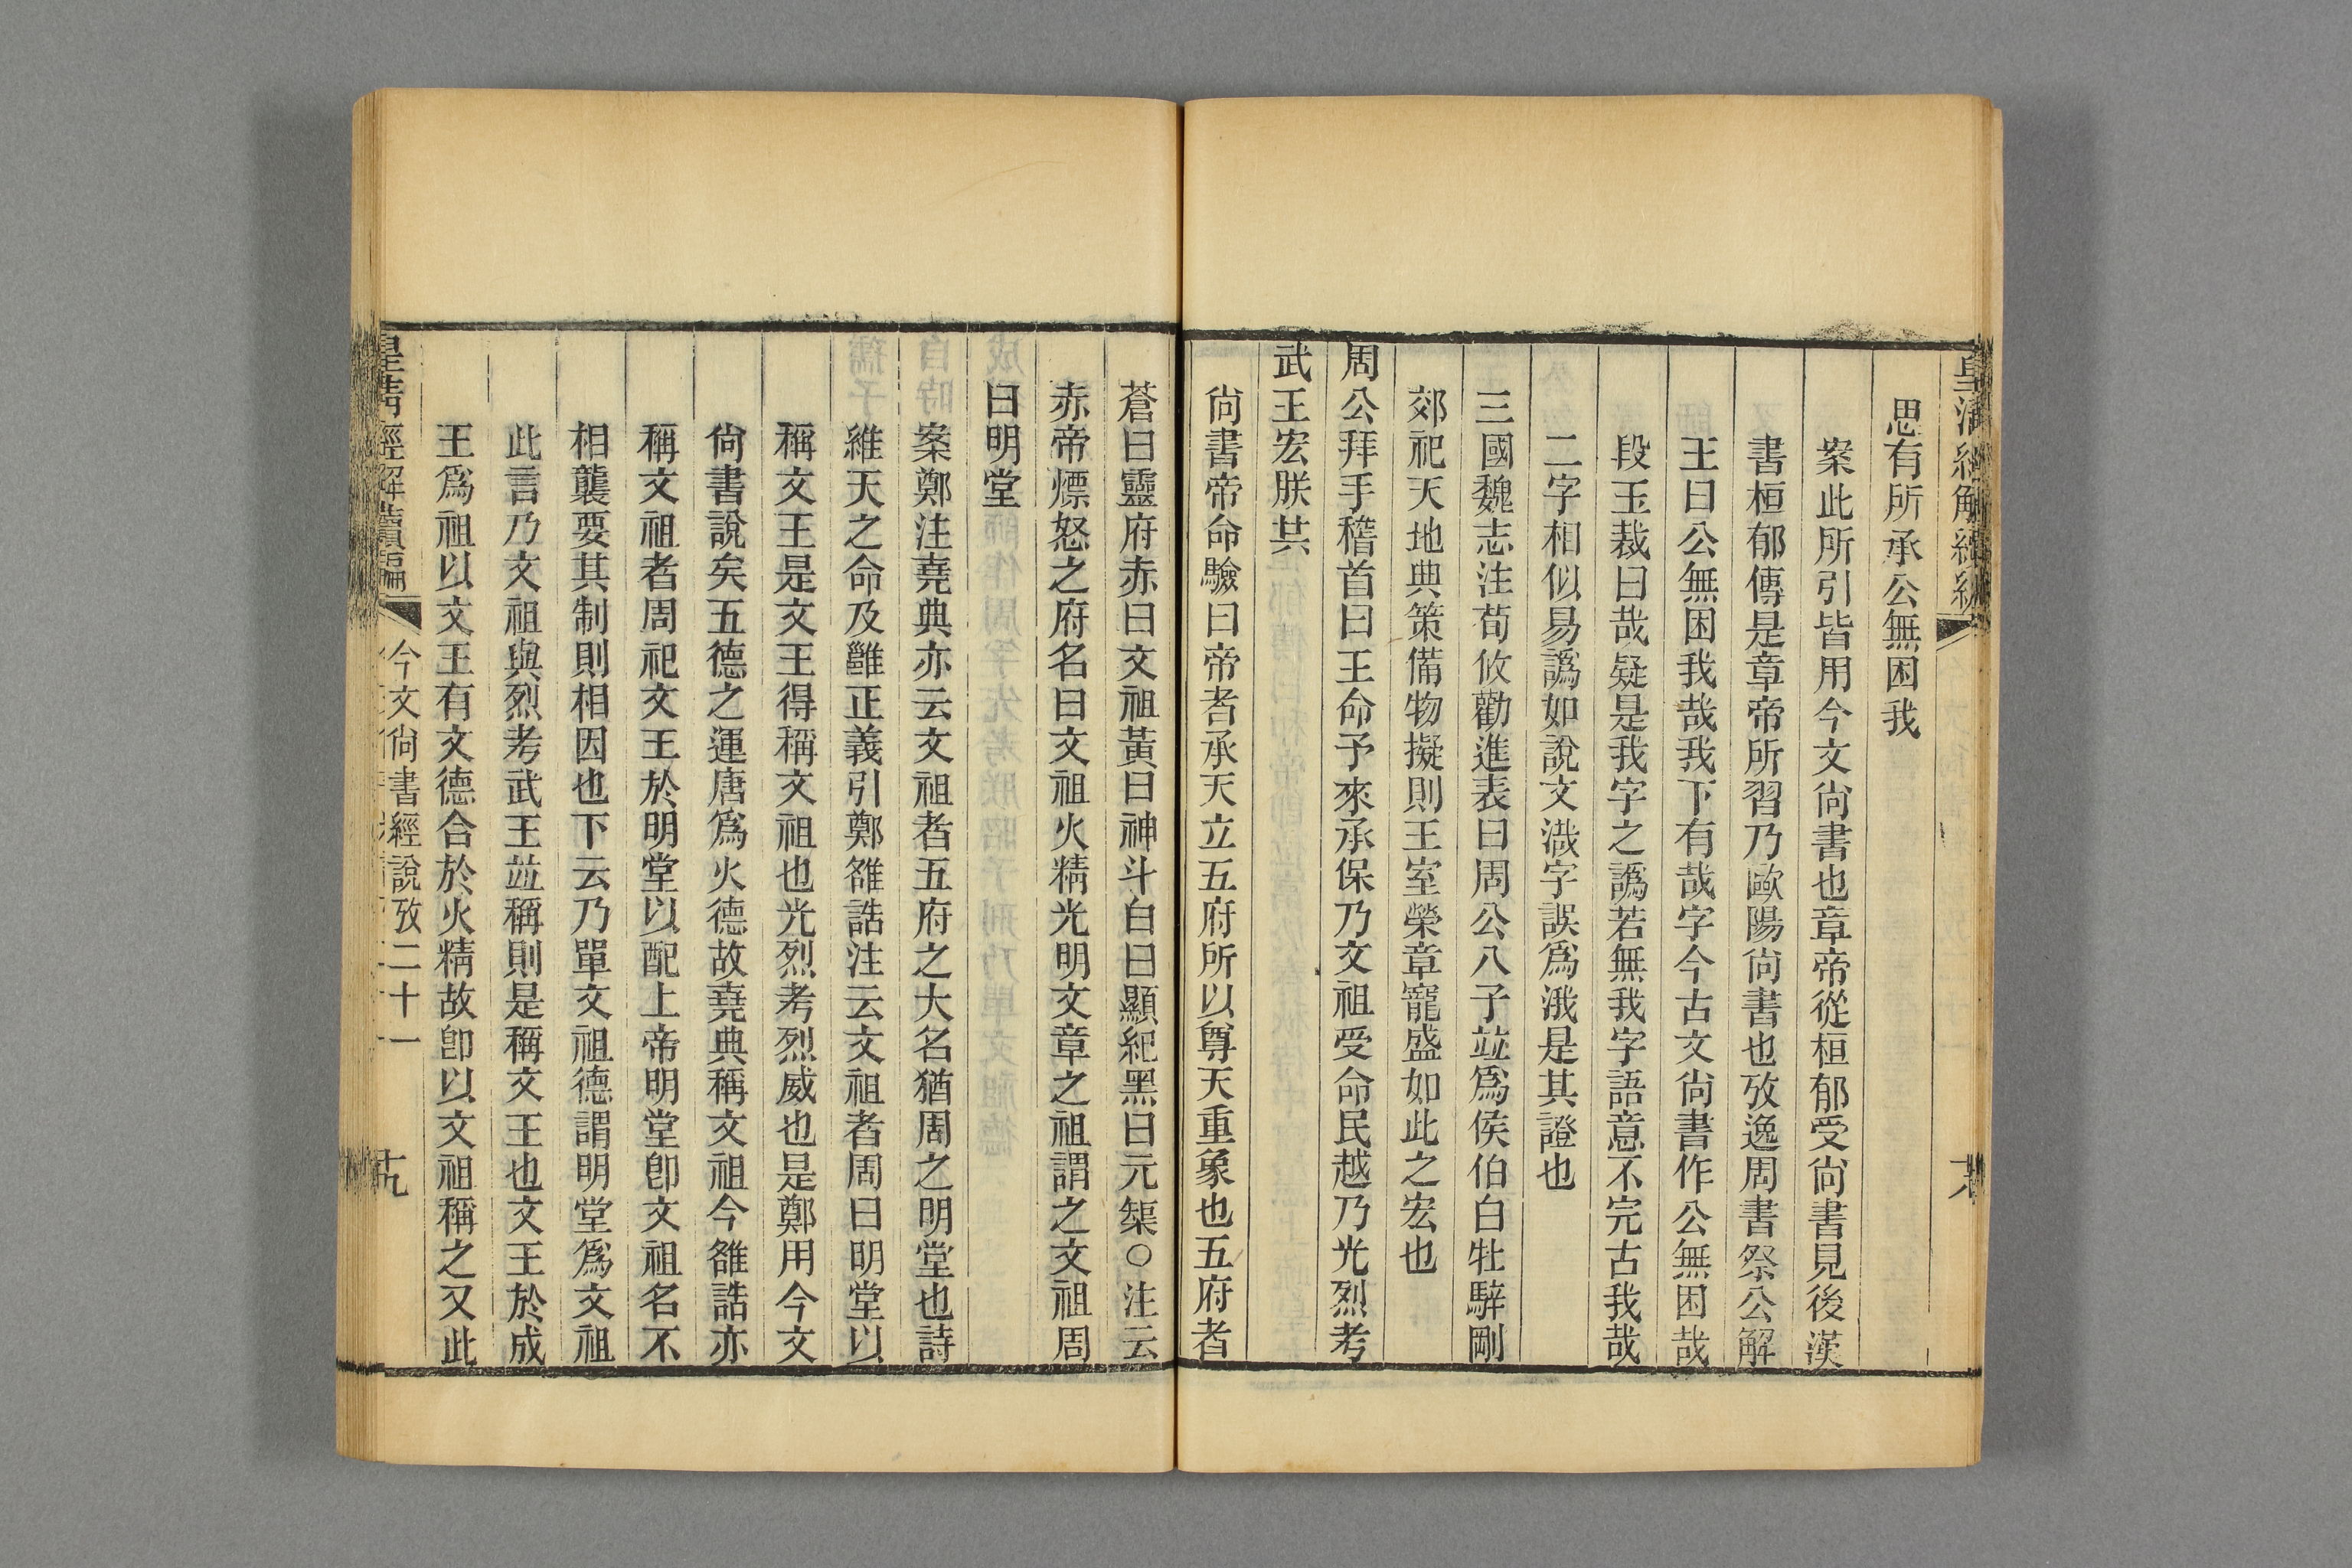 思有所承公無困我
案此所引皆用今文尙書也章帝從桓郁受尙書見後漢
書桓郁傳是章帝所習乃歐陽尙書也攷逸周書祭公解
王曰公無困我哉我下有哉字今古文尙書作公無困哉
段玉裁曰哉疑是我字之譌若無我字語意不完古我哉
二字相似易譌如說文渽字誤爲涐是其證也
三國魏志注荀攸勸進表曰周公八子竝爲侯伯白牡騂剛
郊祀天地典策備物擬則王室榮章寵盛如此之宏也
周公拜手稽首曰王命予來承保乃文祖受命民越乃光烈考
武王宏朕其
尙書帝命驗曰帝者承天立五府所以尊天重象也五府者
蒼曰靈府赤曰文祖黃曰神斗白曰顯紀黑曰元榘○注云
赤帝熛怒之府名曰文祖火精光明文章之祖謂之文祖周
曰明堂
案鄭注堯典亦云文祖者五府之大名猶周之明堂也詩
維天之命及雝正義引鄭雒誥注云文祖者周曰明堂以
稱文王是文王得稱文祖也光烈考烈威也是鄭用今文
尙書說矣五德之運唐爲火德故堯典稱文祖今雒誥亦
稱文祖者周祀文王於明堂以配上帝明堂卽文祖名不
相襲要其制則相因也下云乃單文祖德謂明堂爲文祖
此言乃文祖與烈考武王竝稱則是稱文王也文王於成
王爲祖以文王有文德合於火精故卽以文祖稱之又此
皇淸經解續編
今文尙書經說攷二十一
十九